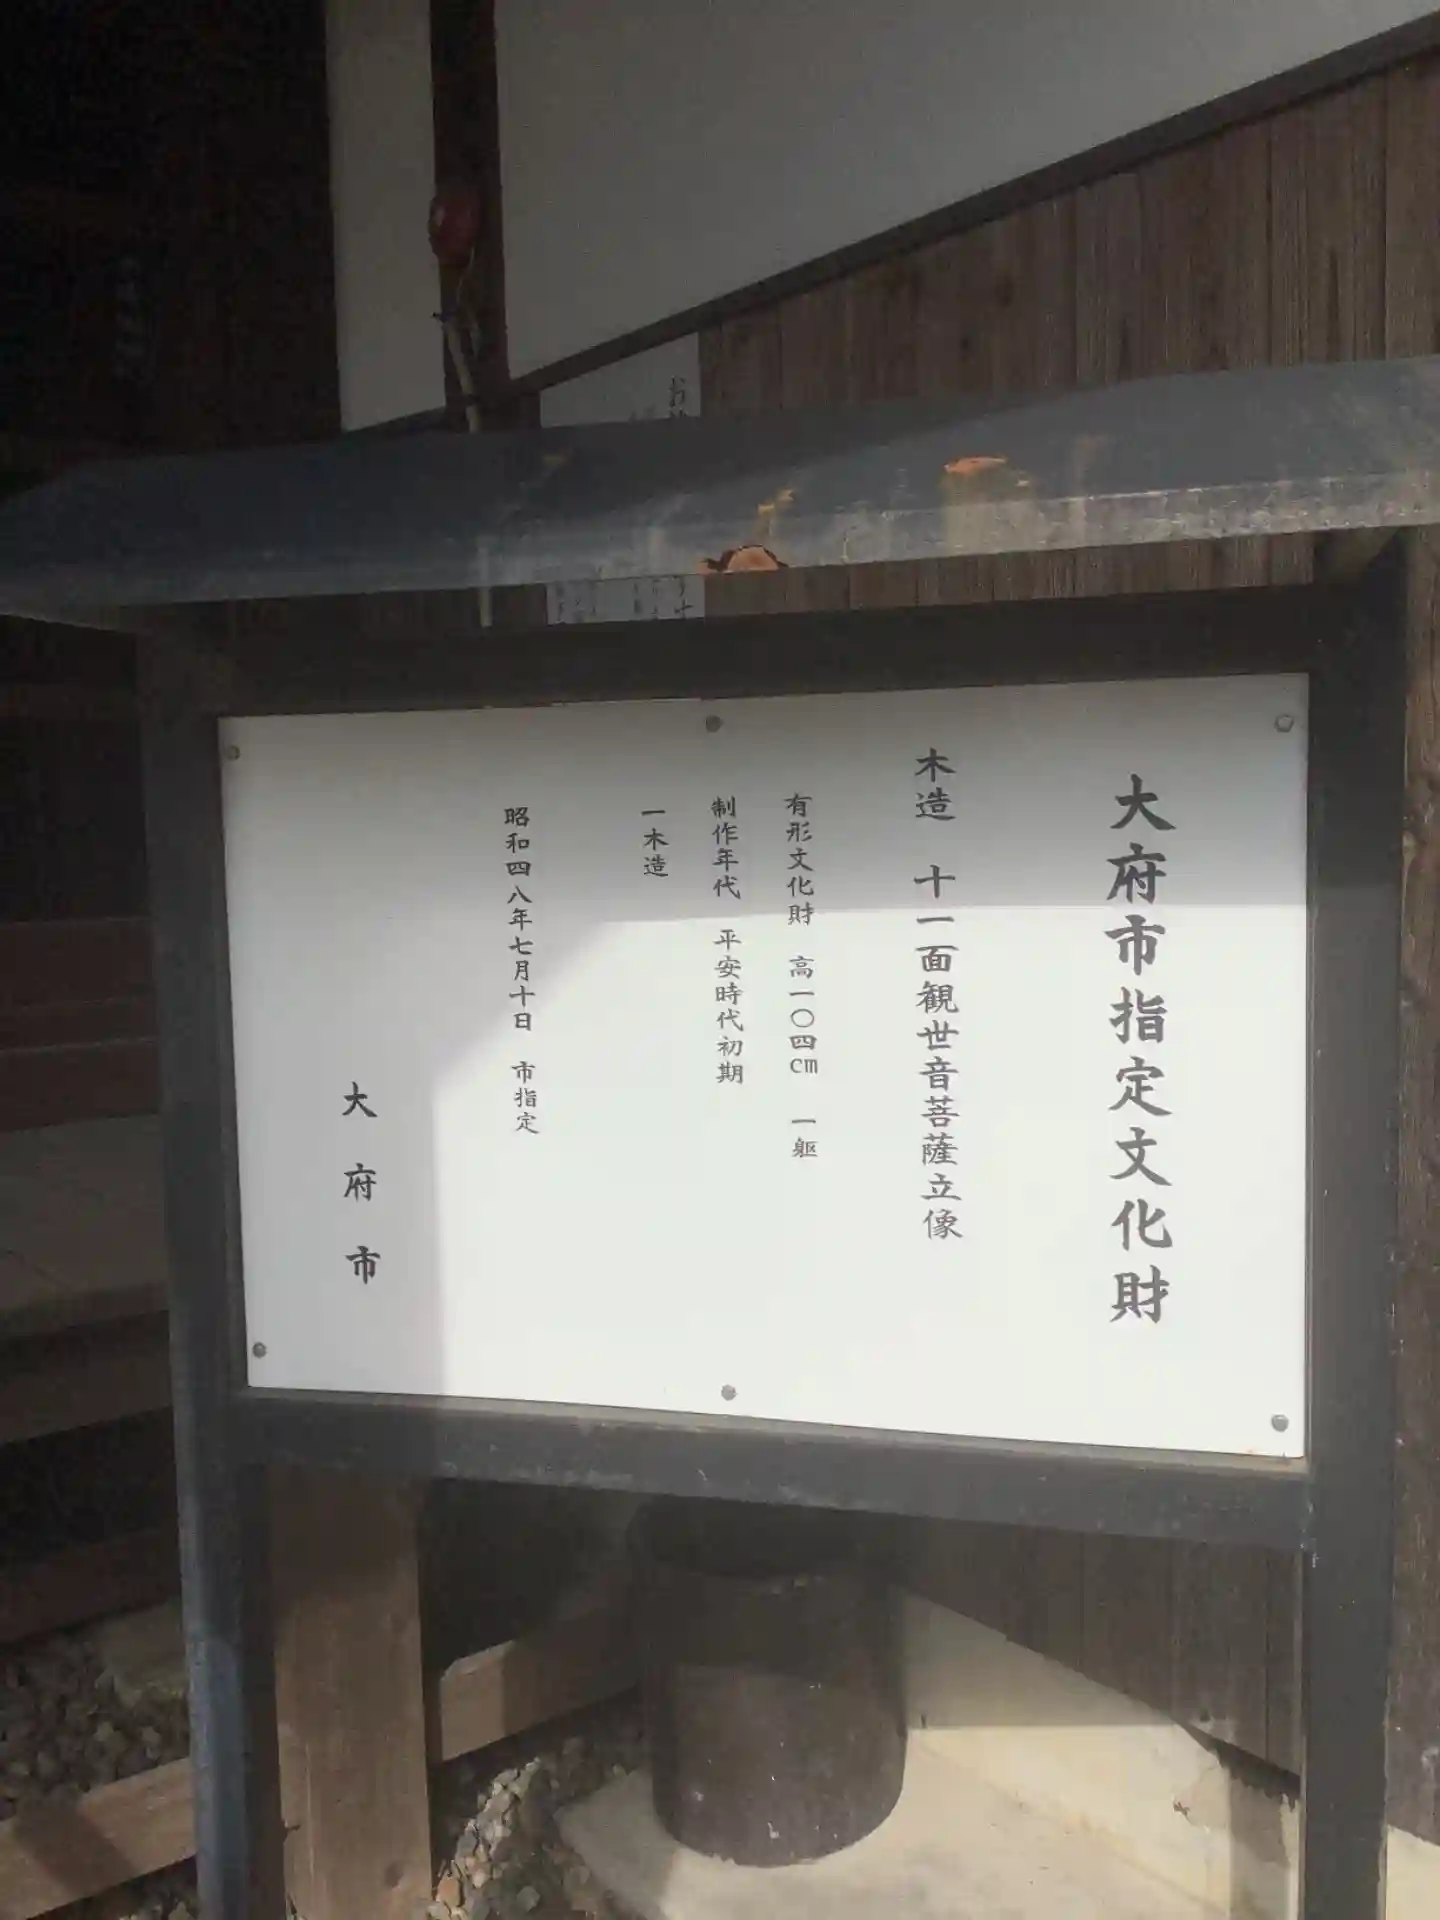 大府市指定文化財
木造　十一面観世音菩薩立像
有形文化財　高一〇四cm　一躯
制作年代　平安時代初期
一木造
昭和四八年七月十日　市指定
大府市
お